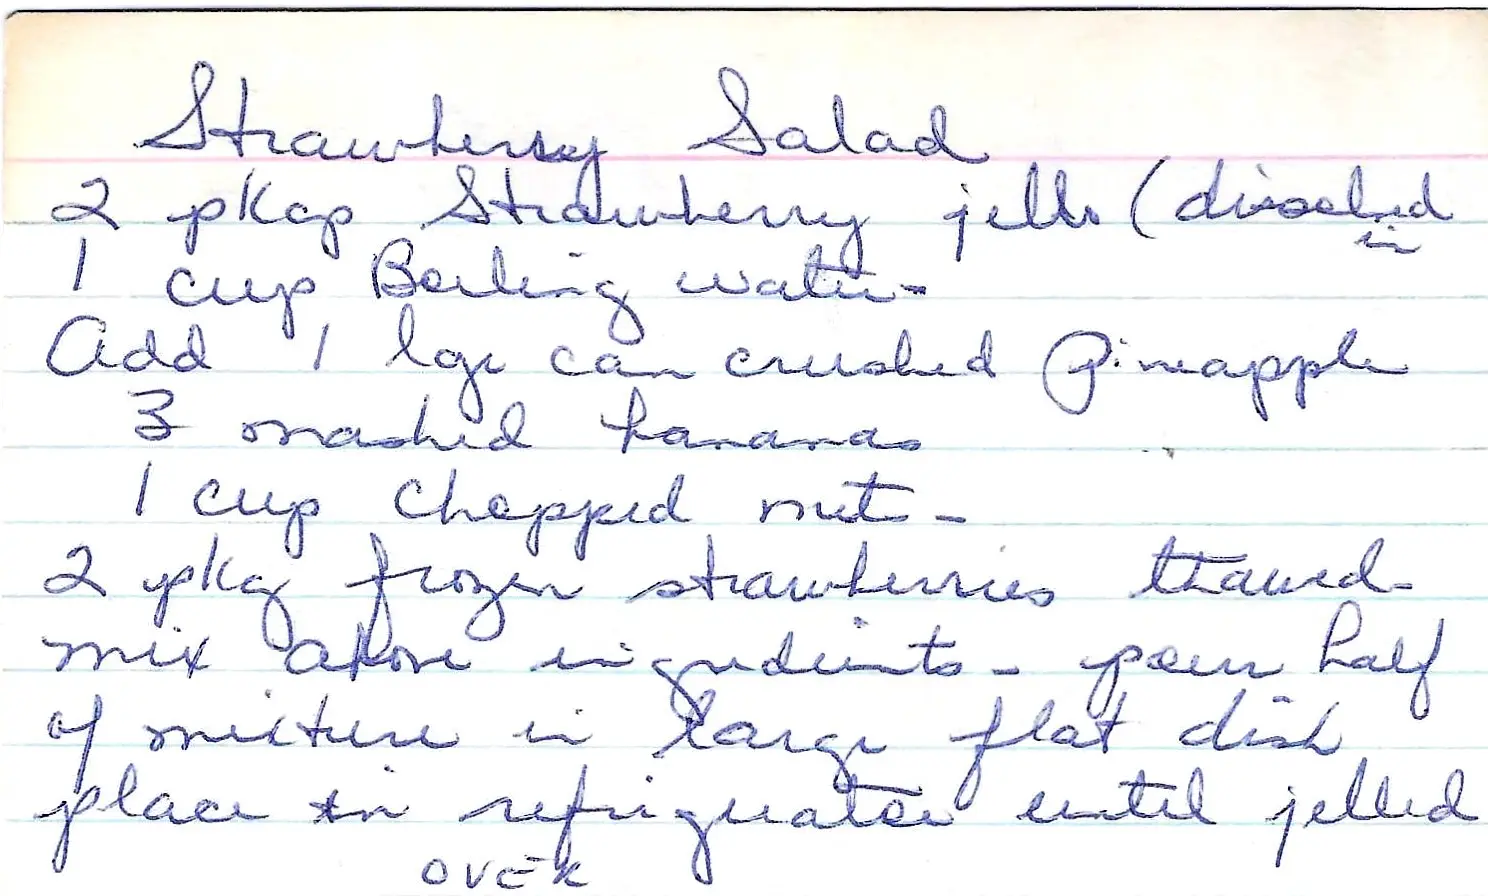 Strawberry Salad
2 pkgs Strawberry jello (disolved
in
1 cup Boiling water-
Add 1 lge can crushed Pineapple
3 mashed bananas
1 cup chopped nuts -
2 pkg frozen strawberries thawed-
mix above ingredients - pour half
of mixture in large flat dish
place in refrigerator until jelled
OVER